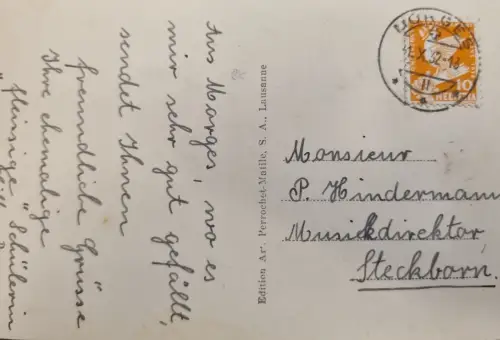 Aus Morges, wo es
mir sehr gut gefällt,
sendet Ihnen
freundliche Grüsse
Ihre ehemalige
"fleissige" Schülerin
Edition Art. Perrochet-Matile, S. A., Lausanne
MORGES
10
HELVETIA
Monsieur
P. Hindermann
Musikdirektor,
Steckborn.